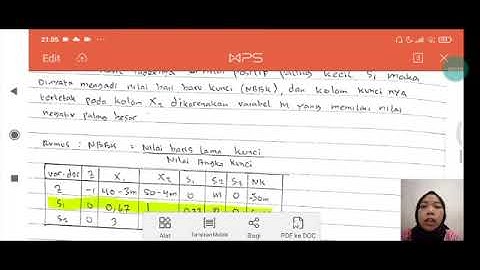 21.05
Edit
WPS
3
positif paling kecil S₁ maka
Dinyata mengadi nilai bari baru kunci (NBBK), dan kolom kunci nya
terletak pada kolom X₂ dikarenakan variabel M yang memiliki nilai
negatif paling besar.
Rumus : NBBK = Nilai baris lama kunci
Nilai Angka kunci
var.das Z X₁ X₂ S₁ S₂ S₃ NK
Z -1 40-3m 50-4m 0 m 0 -30m
S₁ 0 0,67 1 0 0
S₂ 0 3
Alat
Tampilan Mobile
Bagi
PDF ke DOC